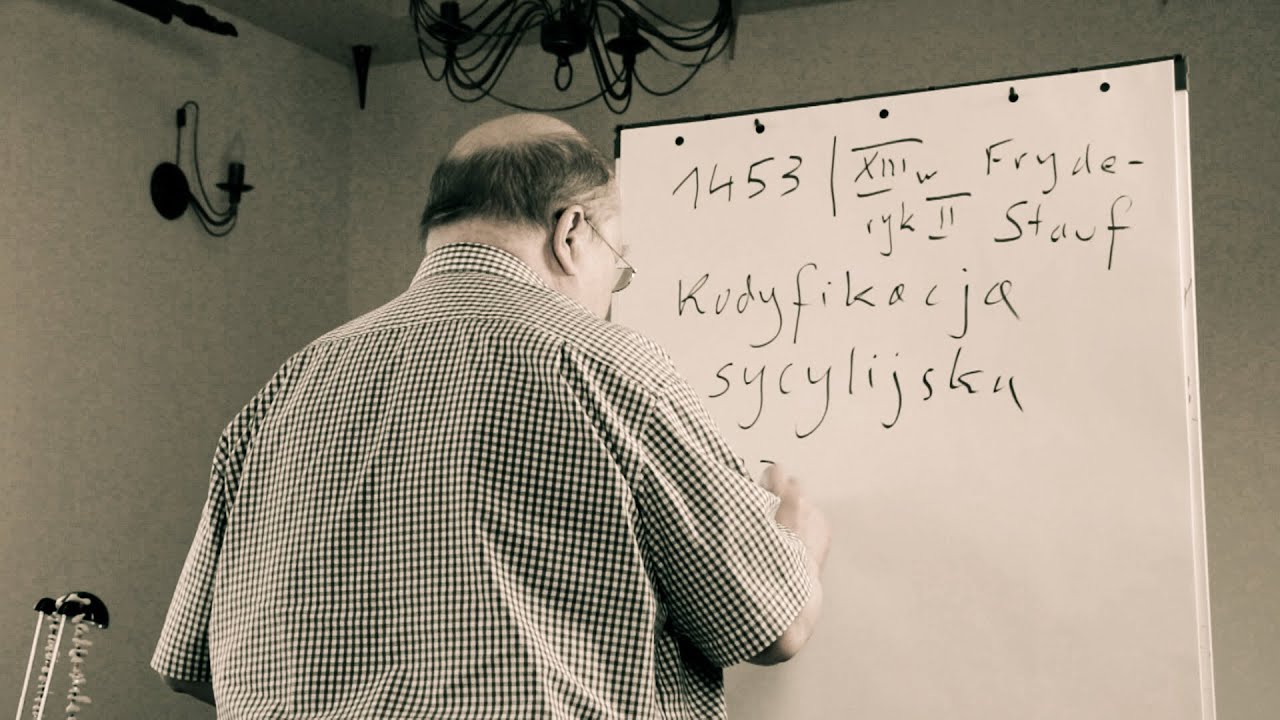 1453 | XIII w Fryde-
ryk II Stauf
Kodyfikacja
sycylijska